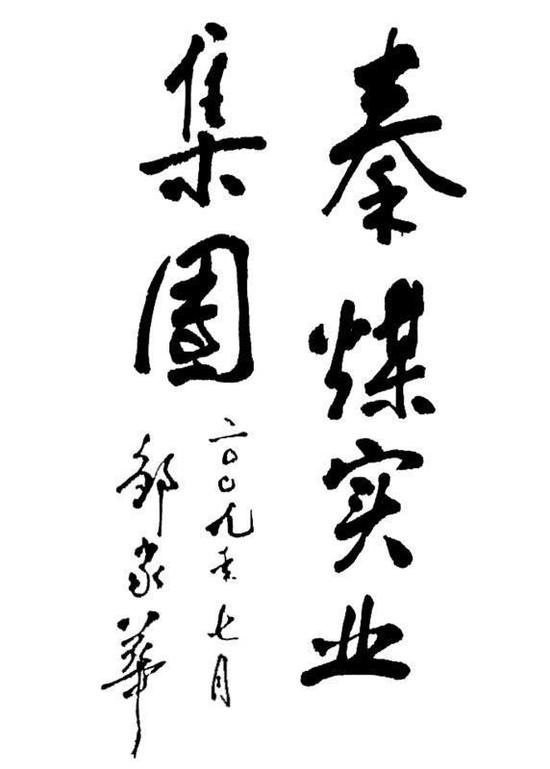 秦煤实业
集團
二〇〇九年七月
邹家華